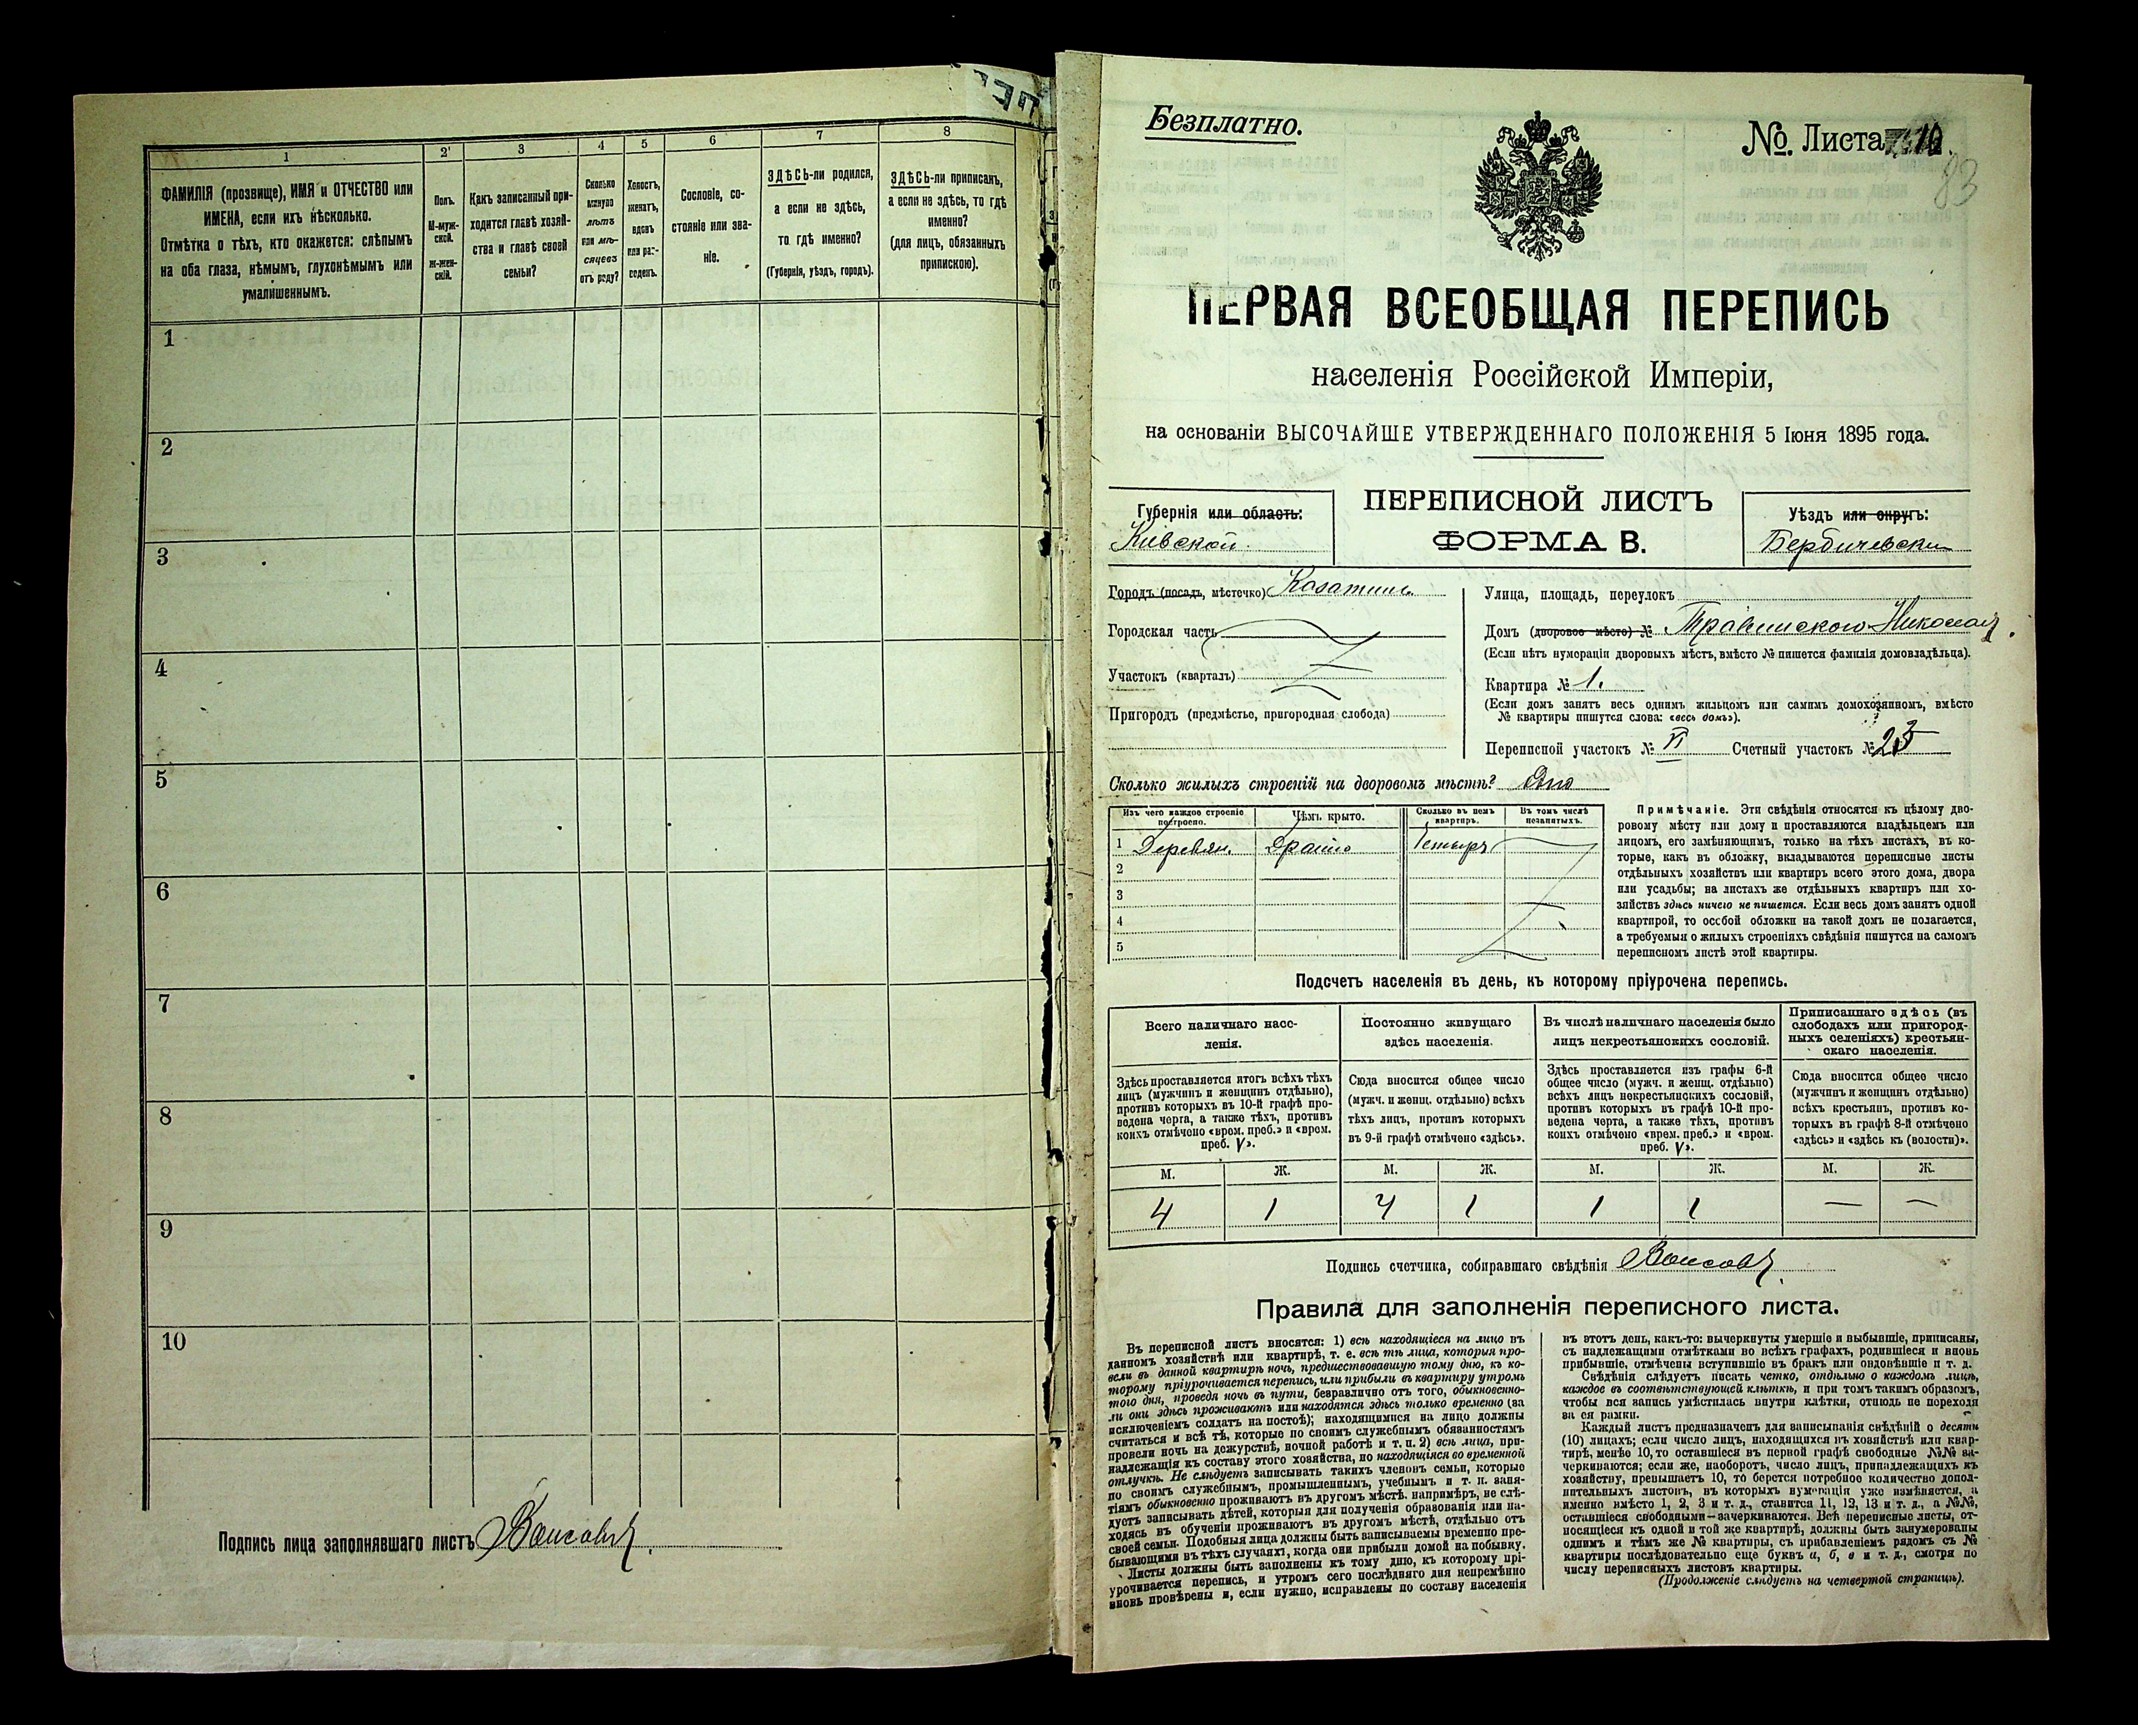 1
2
3
4
5
6
7
8
ФАМИЛІЯ (прозвище), ИМЯ и ОТЧЕСТВО или
ИМЕНА, если ихъ нѣсколько.
Отмѣтка о тѣхъ, кто окажется: слѣпымъ
на оба глаза, нѣмымъ, глухонѣмымъ или
умалишеннымъ.
Полъ.
М-муж-
ской.
ж-жен-
скій.
Какъ записанный при-
ходится главѣ хозяй-
ства и главѣ своей
семьи?
Сколько
минуло
лѣтъ
или мѣ-
сяцевъ
отъ роду?
Холостъ,
женатъ,
вдовъ
или раз-
веденъ.
Сословіе, со-
стояніе или зва-
ніе.
ЗДѢСЬ-ли родился,
а если не здѣсь,
то гдѣ именно?
(Губернія, уѣздъ, городъ).
ЗДѢСЬ-ли приписанъ,
а если не здѣсь, то гдѣ
именно?
(для лицъ, обязанныхъ
припискою).
1
2
3
4
5
6
7
8
9
10
Подпись лица заполнявшаго листъ
Безплатно.
№. Листа
83
ПЕРВАЯ ВСЕОБЩАЯ ПЕРЕПИСЬ
населенія Россійской Имперіи,
на основаніи ВЫСОЧАЙШЕ УТВЕРЖДЕННАГО ПОЛОЖЕНІЯ 5 Іюня 1895 года.
Губернія или область:
Кіевской.
ПЕРЕПИСНОЙ ЛИСТЪ
ФОРМА В.
Уѣздъ или округъ:
Бердичевски
Городъ (посадъ, мѣстечко) Козатинъ
Городская часть
Участокъ (кварталъ)
Пригородъ (предмѣстье, пригородная слобода)
Улица, площадь, переулокъ
Домъ (дворовое мѣсто) № Николая
(Если нѣтъ нумераціи дворовыхъ мѣстъ, вмѣсто № пишется фамилія домовладѣльца).
Квартира № 1.
(Если домъ занятъ весь однимъ жильцомъ или самимъ домохозяиномъ, вмѣсто
№ квартиры пишутся слова: «весь домъ»).
Переписной участокъ № VI Счетный участокъ № 23
Сколько жилыхъ строеній на дворовомъ мѣстѣ? Одно
Изъ чего каждое строеніе
построено.
Чѣмъ крыто.
Сколько въ немъ
квартиръ.
Въ томъ числѣ
незанятыхъ.
1 Деревян. Дранью Четыре
2
3
4
5
Примѣчаніе. Эти свѣдѣнія относятся къ цѣлому дво-
ровому мѣсту или дому и проставляются владѣльцемъ или
лицомъ, его замѣняющимъ, только на тѣхъ листахъ, въ ко-
торые, какъ въ обложку, вкладываются переписные листы
отдѣльныхъ хозяйствъ или квартиръ всего этого дома, двора
или усадьбы; на листахъ же отдѣльныхъ квартиръ или хо-
зяйствъ здѣсь ничего не пишется. Если весь домъ занятъ одной
квартирой, то особой обложки на такой домъ не полагается,
а требуемыя о жилыхъ строеніяхъ свѣдѣнія пишутся на самомъ
переписномъ листѣ этой квартиры.
Подсчетъ населенія въ день, къ которому пріурочена перепись.
Всего наличнаго насе-
ленія.
Постоянно живущаго
здѣсь населенія.
Въ числѣ наличнаго населенія было
лицъ некрестьянскихъ сословій.
Приписаннаго здѣсь (въ
слободахъ или пригород-
ныхъ селеніяхъ) крестьян-
скаго населенія.
Здѣсь проставляется итогъ всѣхъ тѣхъ
лицъ (мужчинъ и женщинъ отдѣльно),
противъ которыхъ въ 10-й графѣ про-
ведена черта, а также тѣхъ, противъ
коихъ отмѣчено «врем. преб.» и «врем.
преб. V».
Сюда вносится общее число
(мужч. и женщ. отдѣльно) всѣхъ
тѣхъ лицъ, противъ которыхъ
въ 9-й графѣ отмѣчено «здѣсь».
Здѣсь проставляется изъ графы 6-й
общее число (мужч. и женщ. отдѣльно)
всѣхъ лицъ некрестьянскихъ сословій,
противъ которыхъ въ графѣ 10-й про-
ведена черта, а также тѣхъ, противъ
коихъ отмѣчено «врем. преб.» и «врем.
преб. V».
Сюда вносится общее число
(мужчинъ и женщинъ отдѣльно)
всѣхъ крестьянъ, противъ ко-
торыхъ въ графѣ 8-й отмѣчено
«здѣсь» и «здѣсь къ (волости)».
М. Ж. М. Ж. М. Ж. М. Ж.
4 1 4 1 1 1 — —
Подпись счетчика, собиравшаго свѣдѣнія
Правила для заполненія переписного листа.
Въ переписной листъ вносятся: 1) всѣ находящіеся на лицо въ
данномъ хозяйствѣ или квартирѣ, т. е. всѣ тѣ лица, которыя про-
вели въ данной квартирѣ ночь, предшествовавшую тому дню, къ ко-
торому пріурочивается перепись, или прибыли въ квартиру утромъ
того дня, проведя ночь въ пути, безразлично отъ того, обыкновенно-
ли они здѣсь проживаютъ или находятся здѣсь только временно (за
исключеніемъ солдатъ на постоѣ); находящимися на лицо должны
считаться и всѣ тѣ, которые по своимъ служебнымъ обязанностямъ
провели ночь на дежурствѣ, ночной работѣ и т. п. 2) всѣ лица, при-
надлежащія къ составу этого хозяйства, но находящіяся во временной
отлучкѣ. Не слѣдуетъ записывать такихъ членовъ семьи, которые
по своимъ служебнымъ, промышленнымъ, учебнымъ и т. п. заня-
тіямъ обыкновенно проживаютъ въ другомъ мѣстѣ. напримѣръ, не слѣ-
дуетъ записывать дѣтей, которыя для полученія образованія или на-
ходясь въ обученіи проживаютъ въ другомъ мѣстѣ, отдѣльно отъ
своей семьи. Подобныя лица должны быть записываемы временно пре-
бывающими въ тѣхъ случаяхъ, когда они прибыли домой на побывку.
Листы должны быть заполнены къ тому дню, къ которому прі-
урочивается перепись, и утромъ сего послѣдняго дня непремѣнно
вновь провѣрены и, если нужно, исправлены по составу населенія
въ этотъ день, какъ-то: вычеркнуты умершіе и выбывшіе, приписаны,
съ надлежащими отмѣтками во всѣхъ графахъ, родившіеся и вновь
прибывшіе, отмѣчены вступившіе въ бракъ или овдовѣвшіе и т. д.
Свѣдѣнія слѣдуетъ писать четко, отдѣльно о каждомъ лицѣ,
каждое въ соотвѣтствующей клѣткѣ, и при томъ такимъ образомъ,
чтобы вся запись умѣстилась внутри клѣтки, отнюдь не переходя
за ея рамки.
Каждый листъ предназначенъ для записыванія свѣдѣній о десяти
(10) лицахъ; если число лицъ, находящихся въ хозяйствѣ или квар-
тирѣ, менѣе 10, то оставшіеся въ первой графѣ свободные №№ за-
черкиваются; если же, наоборотъ, число лицъ, принадлежащихъ къ
хозяйству, превышаетъ 10, то берется потребное количество допол-
нительныхъ листовъ, въ которыхъ нумерація уже измѣняется, а
именно вмѣсто 1, 2, 3 и т. д., ставится 11, 12, 13 и т. д., а №№,
оставшіеся свободными—зачеркиваются. Всѣ переписные листы, от-
носящіеся къ одной и той же квартирѣ, должны быть занумерованы
однимъ и тѣмъ же № квартиры, съ прибавленіемъ рядомъ съ №
квартиры послѣдовательно еще буквъ а, б, в и т. д., смотря по
числу переписныхъ листовъ квартиры.
(Продолженіе слѣдуетъ на четвертой страницѣ).